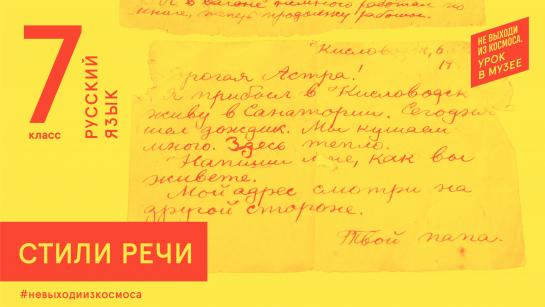 7
класс
РУССКИЙ
ЯЗЫК
НЕ ВЫХОДИ
ИЗ КОСМОСА.
УРОК
В МУЗЕЕ
Кисловодск, 6
Дорогая Астра!
Я прибыл в Кисловодск
живу в Санатории. Сегодня
шел дождик. Мы кушаем
много. Здесь тепло.
Напиши мне, как вы
живете.
Мой адрес смотри на
другой стороне.
Твой папа.
СТИЛИ РЕЧИ
#невыходиизкосмоса